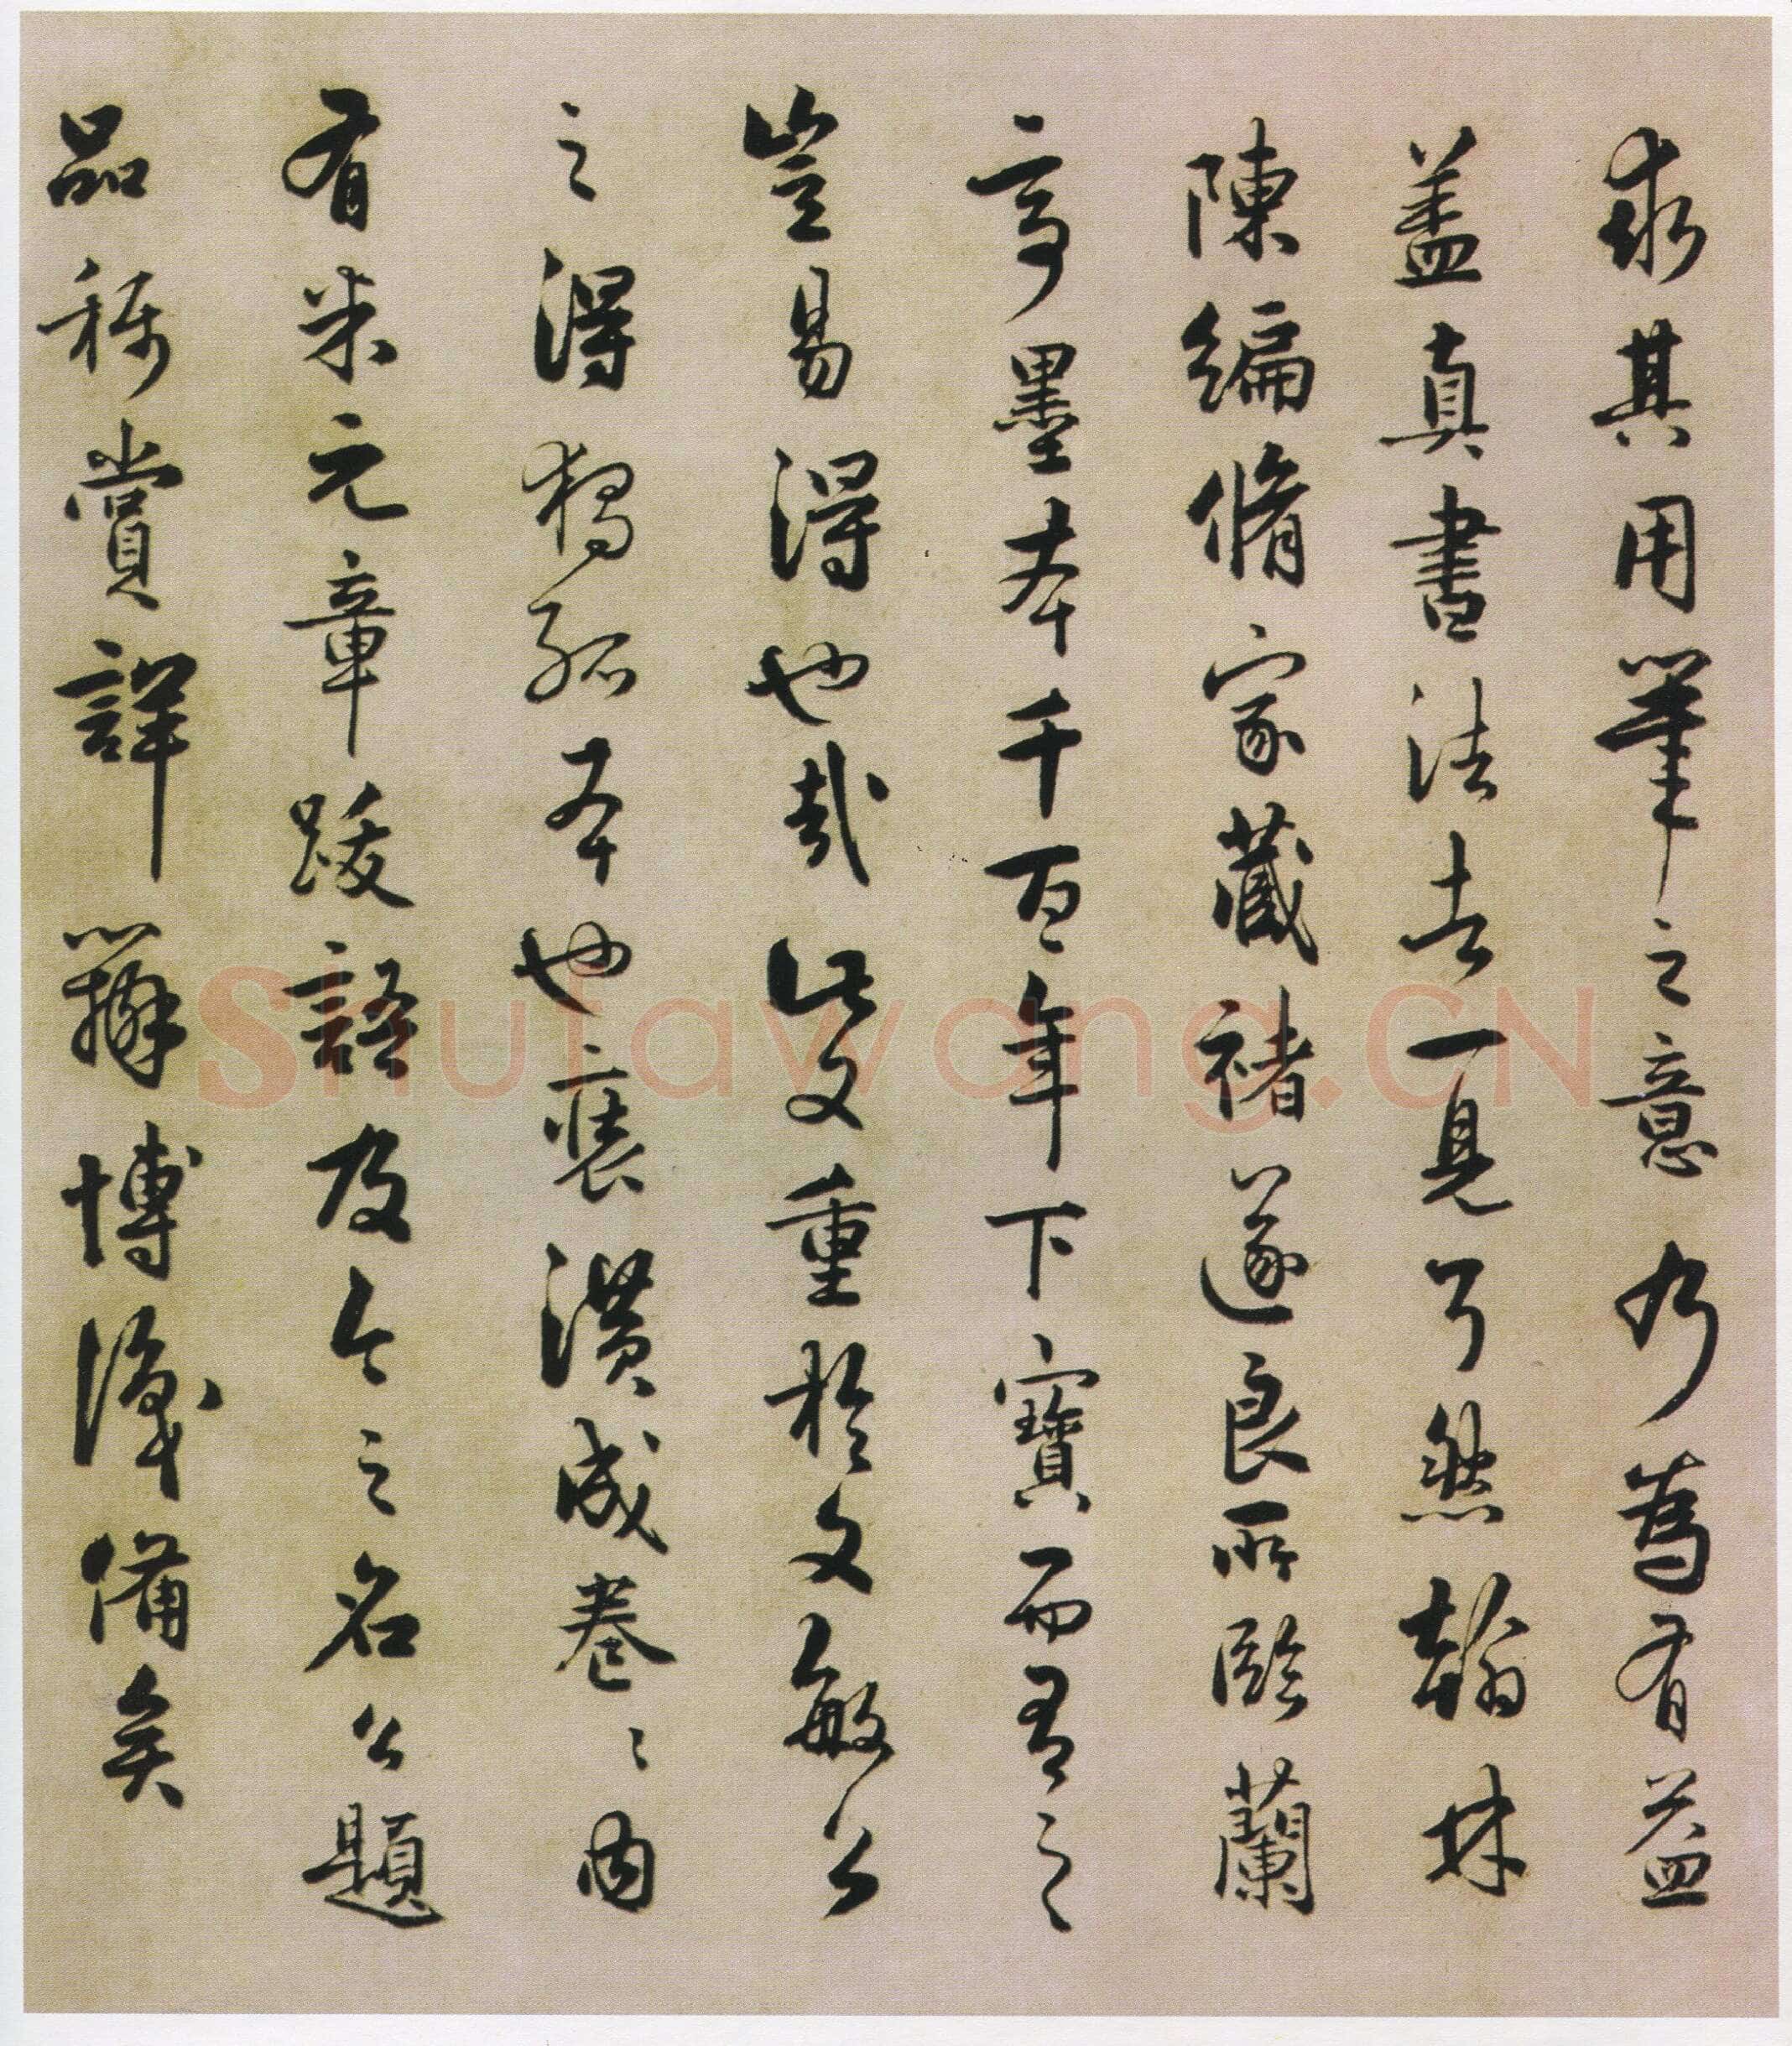 求其用筆之意乃為有益
蓋真書法者一見了然翰林
陳編脩家藏褚遂良所臨蘭
亭墨本千百年下寶而有之
豈易得也哉此文重於文敏公
之得獨孤本也裝潢成卷〻內
有米元章跋語及今之名公題
品稱賞詳辯博識備矣
Shufawang.CN